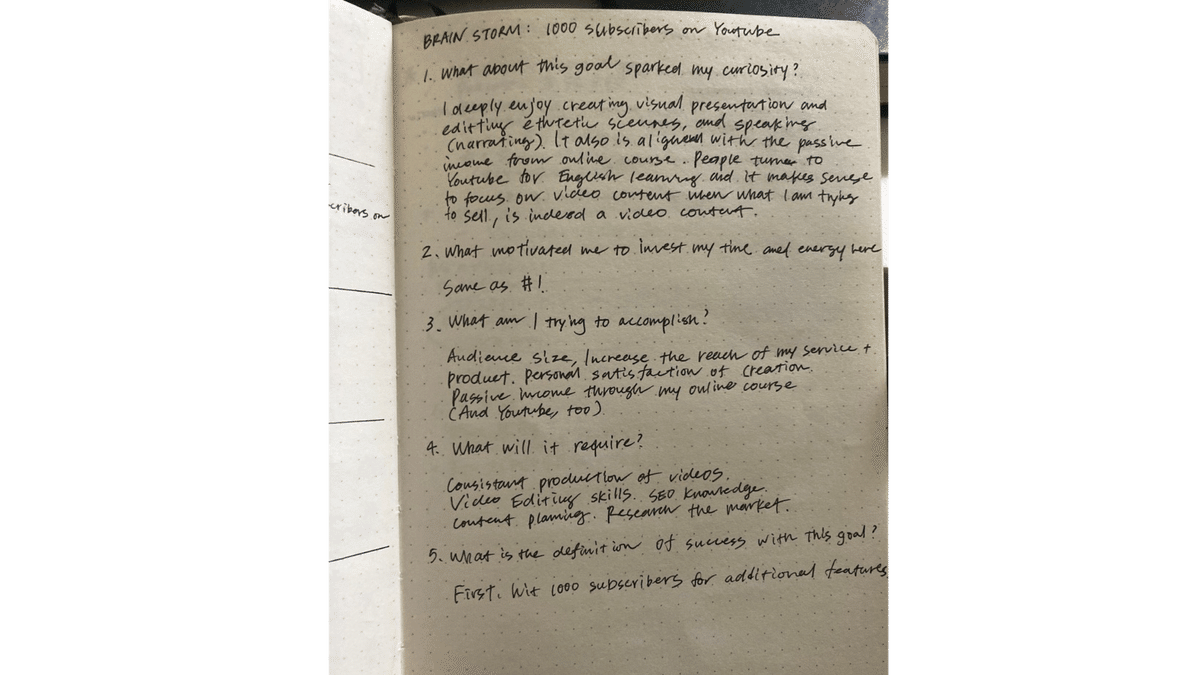 BRAIN STORM: 1000 subscribers on Youtube
1. What about this goal sparked my curiosity?
I deeply enjoy creating visual presentation and
editting sceenes, and speaking
(narrating). It also is aligned with the passive
income from online course. People turn to
Youtube for English learning and it makes sense
to focus on video content when what I am trying
to sell, is indeed a video content.
cribers on
2. What motivated me to invest my time and energy here
Same as #1.
3. What am I trying to accomplish?
Audience size, Increase the reach of my service +
product. Personal satisfaction of creation.
Passive income through my online course
(And Youtube, too)
4. What will it require?
Consistant production of videos.
Video Editing skills. SEO knowledge.
content planing. Research the market.
5. What is the definition of success with this goal?
First, hit 1000 subscribers for additional features.